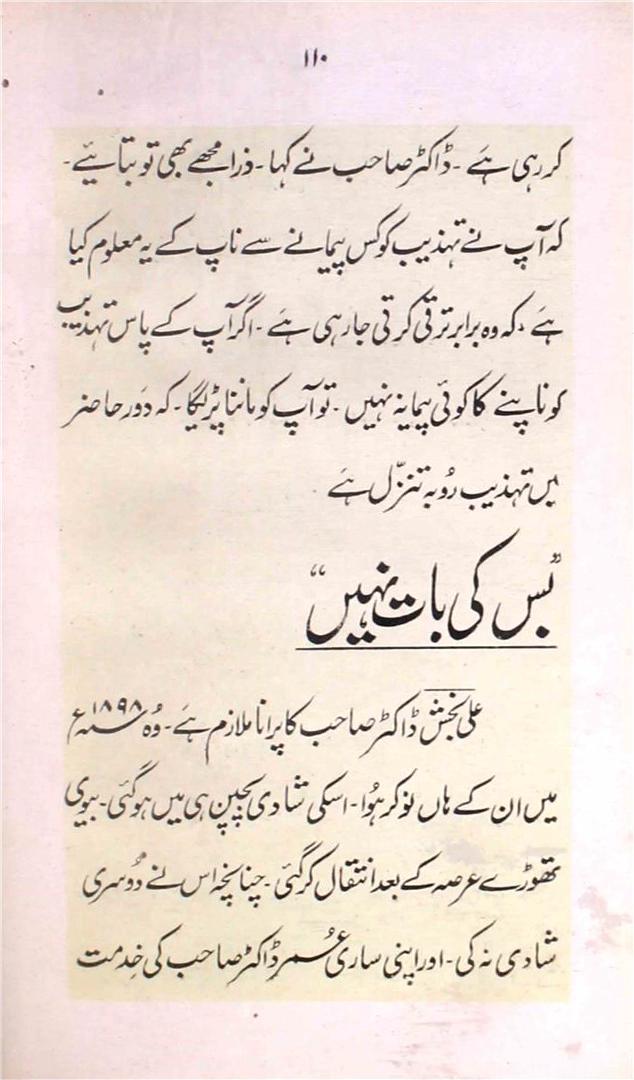 ۱۱۰
کر رہی ہَے ۔ ڈاکٹر صاحب نے کہا ۔ ذرا مجھے بھی تو بتائیے ۔
کہ آپ نے تہذیب کو کس پیمانے سے ناپ کے یہ معلوم کیا
ہَے ، کہ وہ برابر ترقی کرتی جا رہی ہَے ۔ اگر آپ کے پاس تہذیب
کو ناپنے کا کوئی پیمایہ نہیں ۔ تو آپ کو ماننا پڑلیگا ۔ کہ دَور حاضر
میں تہذیب رُوبہ تنزّل ہَے
”بس کی بات نہیں“
علی بخش ڈاکٹر صاحب کا پرانا ملازم ہَے ۔ وُہ ۱۸۹۸ء
میں ان کے ہاں نوکر ہوُا ۔ اسکی شادی بچپن ہی میں ہو گئی ۔ بیوی
تھوڑے عرصہ کے بعد انتقال کر گئی ۔ چنانچہ اس نے دُوسری
شادی نہ کی ۔ اور اپنی ساری عُمر ڈاکٹر صاحب کی خِدمت